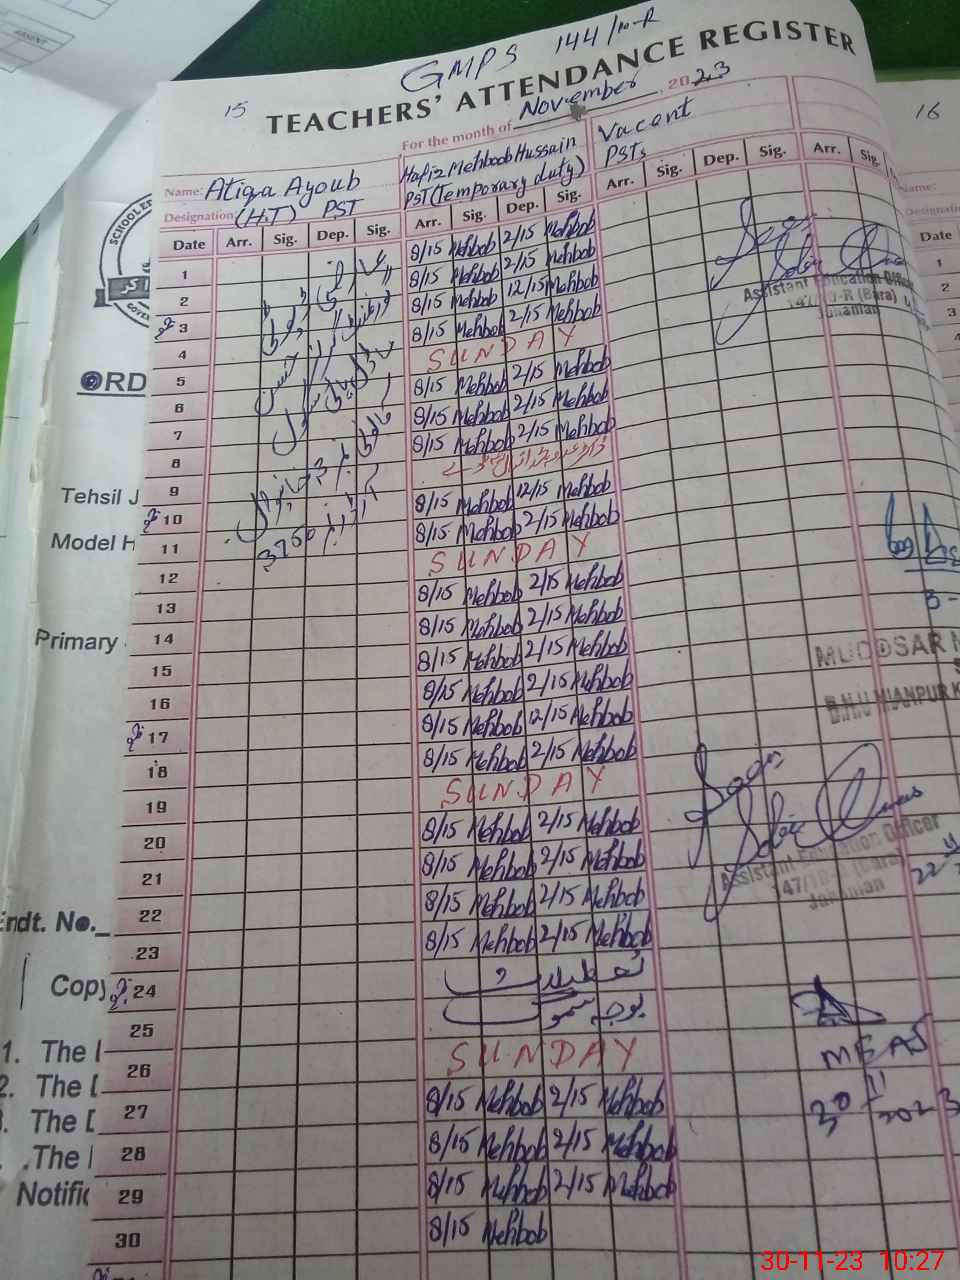 ABSENT
GMPS 144/10-R
15
TEACHERS' ATTENDANCE REGISTER
For the month of November, 2023
16
Name: Atiqa Ayoub
Hafiz Mehboob Hussain
Vacant
Designation (H.T) PST
PST (Temporary duty)
PSTs
Date Arr. Sig. Dep. Sig. Arr. Sig. Dep. Sig. Arr. Sig. Dep. Sig. Arr. Sig.
Name:
Designation
Date
1 8/15 Mehbob 2/15 Mehbob
2 8/15 Mehbob 2/15 Mehbob
3 8/15 Mehbob 12/15 Mehbob
4 8/15 Mehbob 2/15 Mehbob
5 SUNDAY
6 8/15 Mehbob 2/15 Mehbob
7 8/15 Mehbob 2/15 Mehbob
8 8/15 Mehbob 2/15 Mehbob
9
10 8/15 Mehbob 12/15 Mehbob
11 8/15 Mehbob 2/15 Mehbob
12 SUNDAY
13 8/15 Mehbob 2/15 Mehbob
14 8/15 Mehbob 2/15 Mehbob
15 8/15 Mehbob 2/15 Mehbob
16 8/15 Mehbob 2/15 Mehbob
17 8/15 Mehbob 12/15 Mehbob
18 8/15 Mehbob 2/15 Mehbob
19 SUNDAY
20 8/15 Mehbob 2/15 Mehbob
21 8/15 Mehbob 2/15 Mehbob
22 8/15 Mehbob 2/15 Mehbob
23 8/15 Mehbob 2/15 Mehbob
24 تعطیلات
25 بوجہ سموگ
26 SUNDAY
27 8/15 Mehbob 2/15 Mehbob
28 8/15 Mehbob 2/15 Mehbob
29 8/15 Mehbob 2/15 Mehbob
30 8/15 Mehbob
3760
Assistant Education Officer
147/10-R (Bara)
Jahanian
MUDDSAR
B.H.U MIANPUR
Assistant Education Officer
147/10-R (Bara)
Jahanian
MEA
30 11 2023
ORD
Tehsil J
Model H
Primary
Endt. No.
Copy
1. The
2. The D
The D
The
Notific
30-11-23 10:27